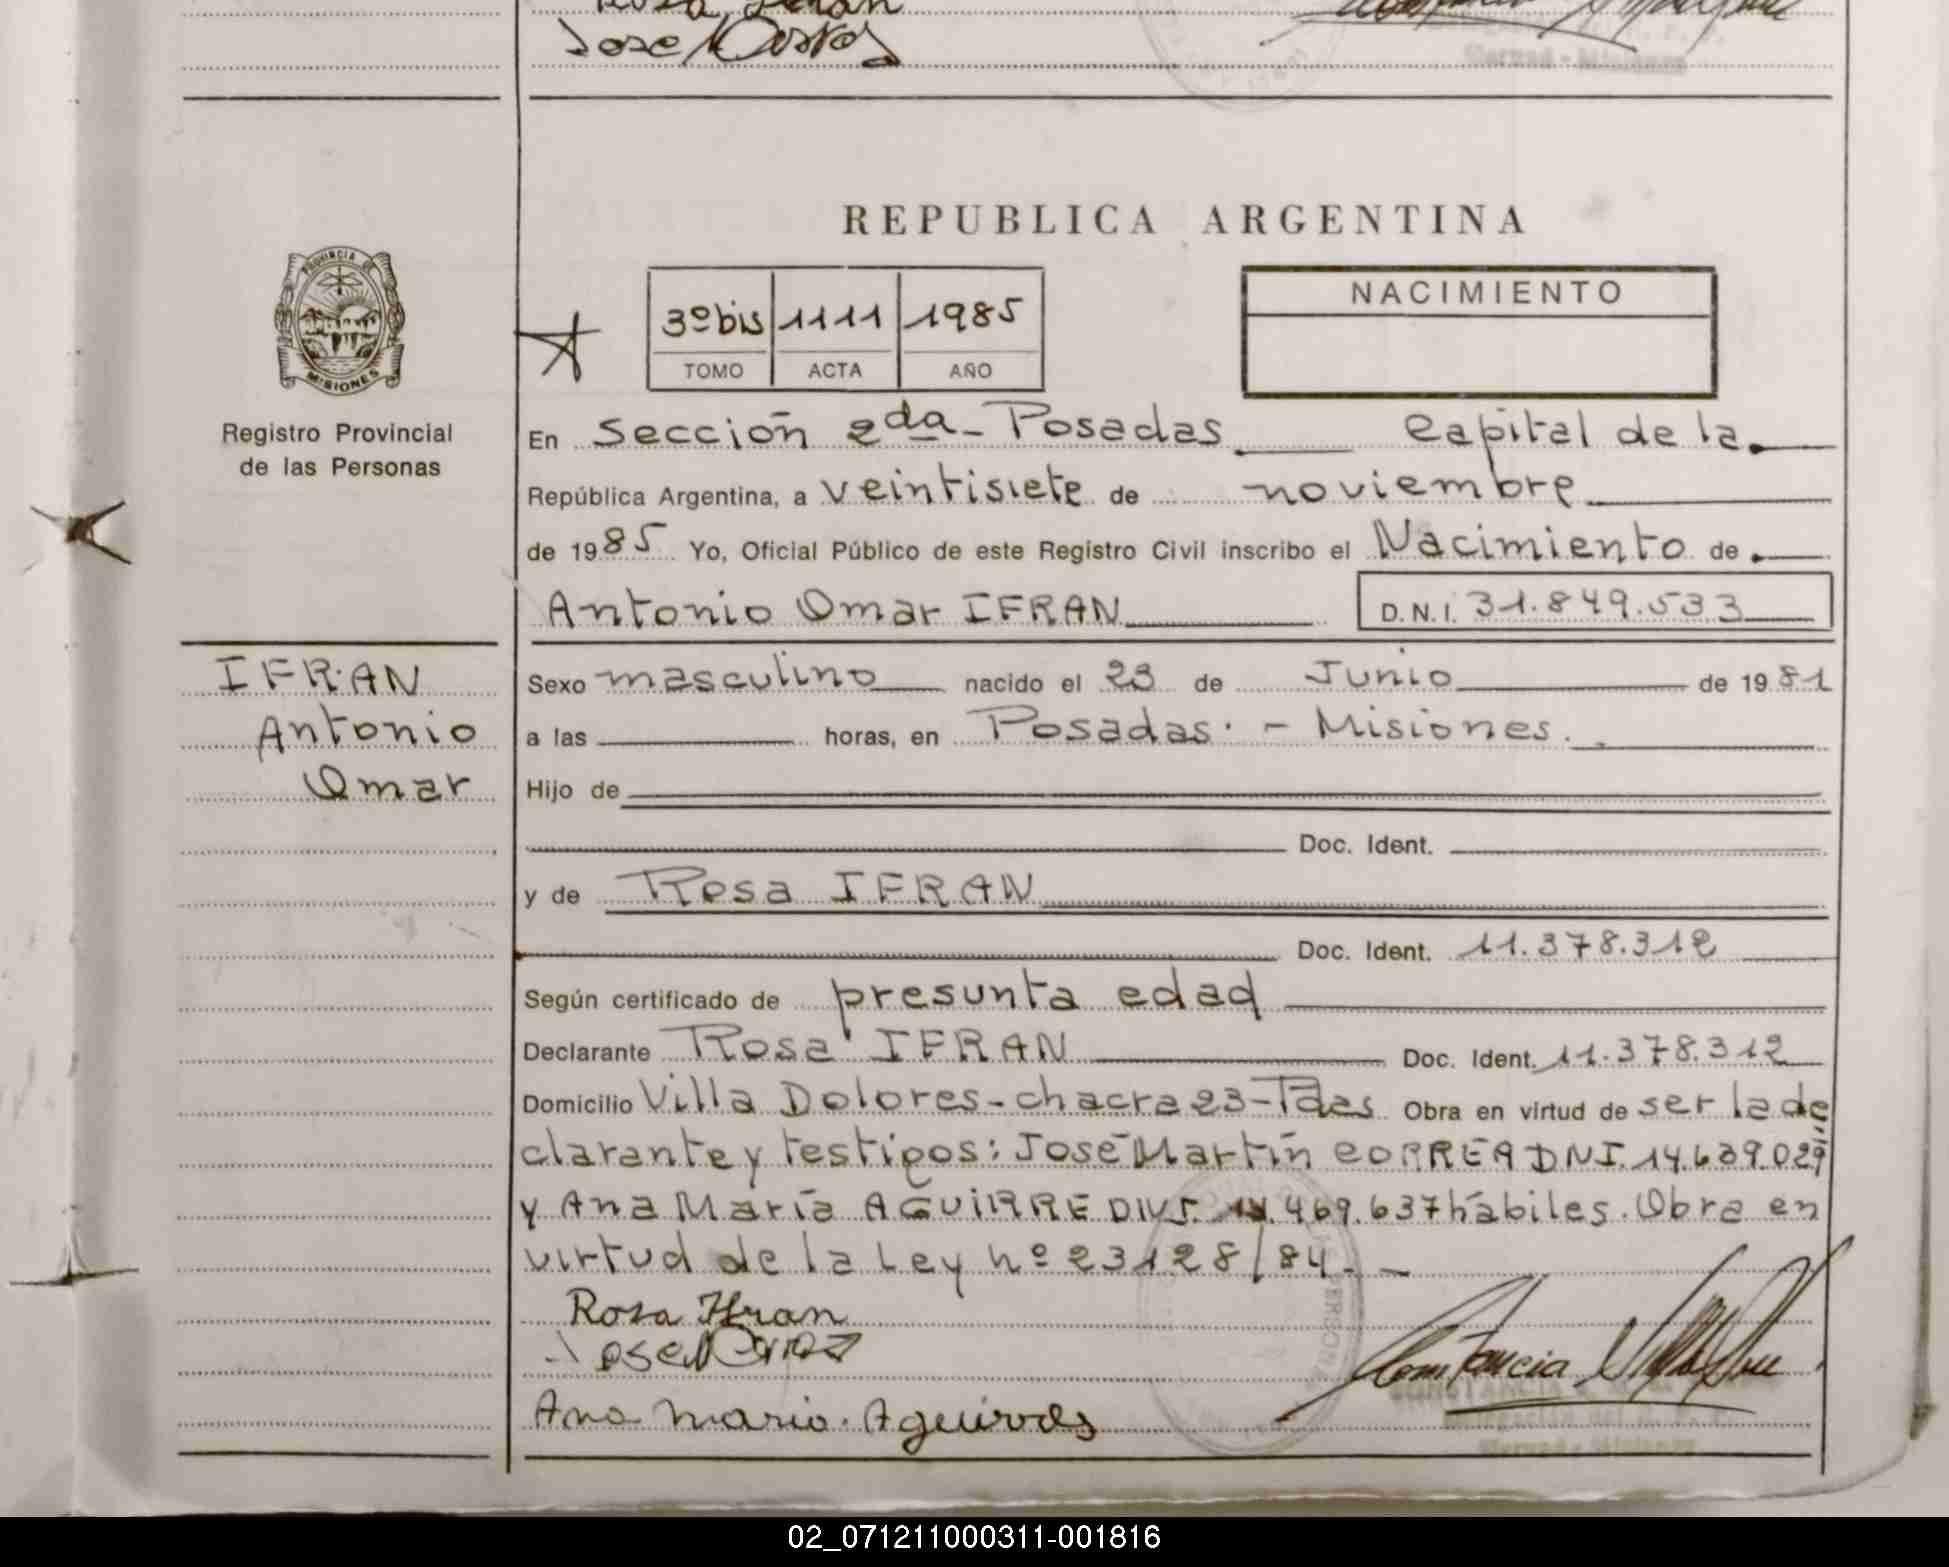 Rosa Ifran
Jose
Bernad - Misiones
REPUBLICA ARGENTINA
PROVINCIA DE
MISIONES
Registro Provincial
de las Personas
3º bis 1111 1985
TOMO ACTA AÑO
NACIMIENTO
En Sección 2da - Posadas Capital de la
República Argentina, a veintisiete de noviembre
de 1985 Yo, Oficial Público de este Registro Civil inscribo el Nacimiento de
Antonio Omar IFRAN D.N.I. 31.849.533
IFRAN
Antonio
Omar
Sexo masculino nacido el 23 de Junio de 1981
a las horas, en Posadas. - Misiones.
Hijo de
Doc. Ident.
y de Rosa IFRAN
Doc. Ident. 11.378.312
Según certificado de presunta edad
Declarante Rosa IFRAN Doc. Ident. 11.378.312
Domicilio Villa Dolores - chacra 23 - Pdas Obra en virtud de ser la de
clarante y testigos: José Martín CORREA DNI. 14.639.029
y Ana María AGUIRRE DNI. 469.637 hábiles. Obra en
virtud de la Ley nº 23128/84. -
Rosa Ifran
Jose
Ana Maria Aguirre
Constancia
02_071211000311-001816